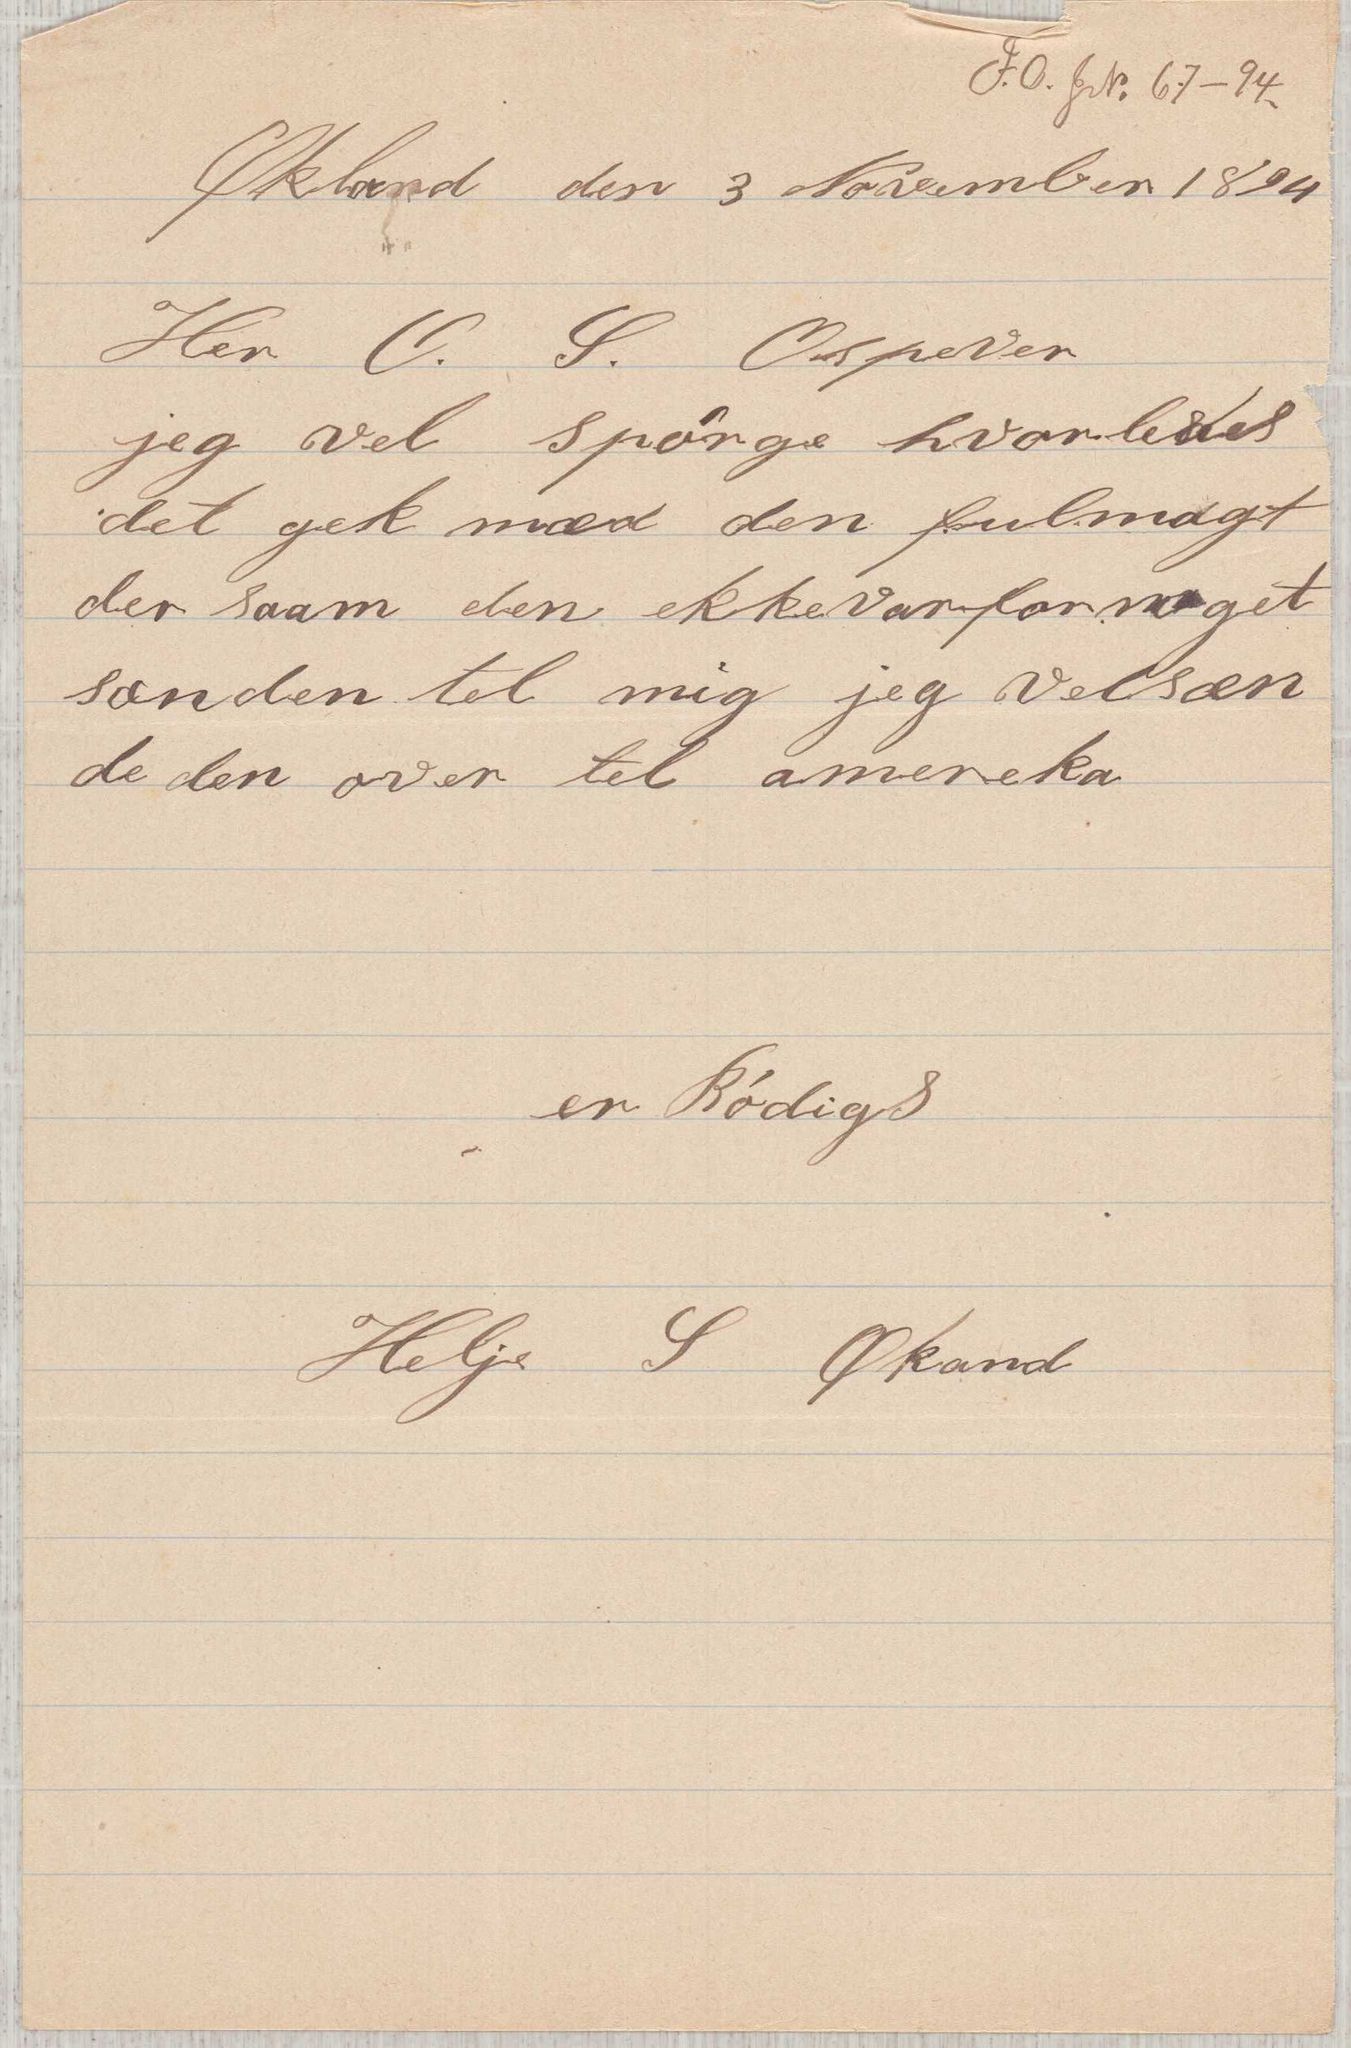 F.O. JN. 67-94.
Økland den 3 November 1894
Her C. S. Ospever
jeg vel spørge hvorledes
det gek mæd den fulmagt
der saam den ekke var for noget
sænden tel mig jeg vel sæn
de den over tel amereka
er Bödigs
Helje S Økand